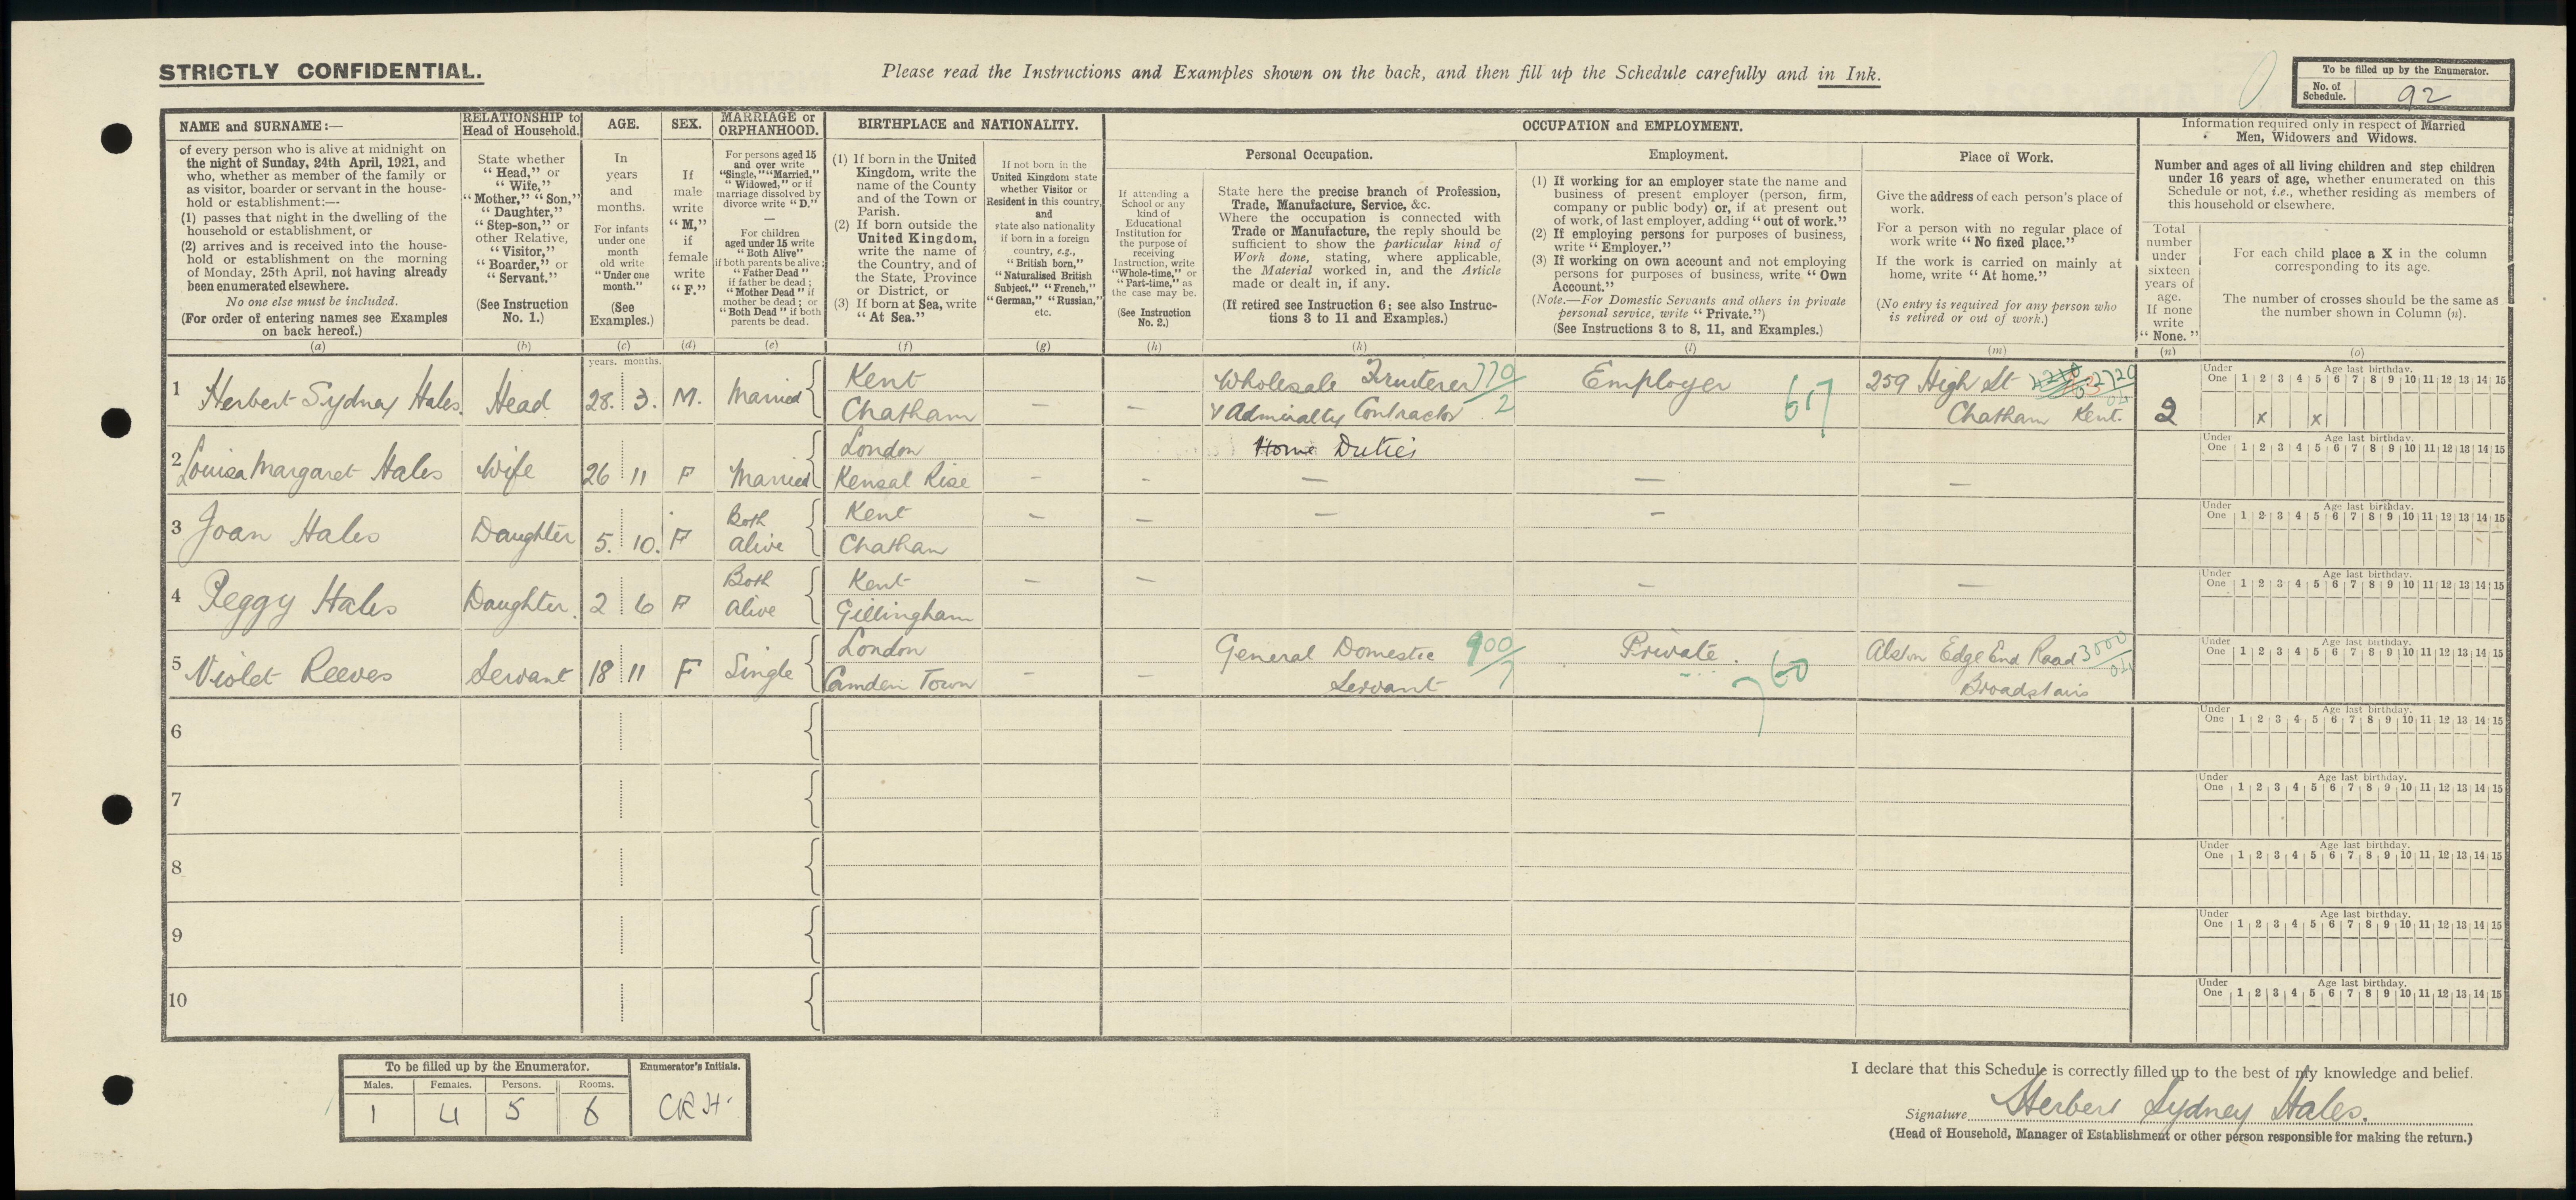 STRICTLY CONFIDENTIAL.
Please read the Instructions and Examples shown on the back, and then fill up the Schedule carefully and in Ink.
To be filled up by the Enumerator.
No. of Schedule. 92
NAME and SURNAME:—
of every person who is alive at midnight on
the night of Sunday, 24th April, 1921, and
who, whether as member of the family or
as visitor, boarder or servant in the house-
hold or establishment:—
(1) passes that night in the dwelling of the
household or establishment, or
(2) arrives and is received into the house-
hold or establishment on the morning
of Monday, 25th April, not having already
been enumerated elsewhere.
No one else must be included.
(For order of entering names see Examples
on back hereof.)
(a)
RELATIONSHIP to
Head of Household.
State whether
"Head," or
"Wife,"
"Mother," "Son,"
"Daughter,"
"Step-son," or
other Relative,
"Visitor,"
"Boarder," or
"Servant."
(See Instruction
No. 1.)
(b)
AGE.
In
years
and
months.
For infants
under one
month
old write
"Under one
month."
(See
Examples.)
(c)
SEX.
If
male
write
"M,"
if
female
write
"F."
(d)
MARRIAGE or
ORPHANHOOD.
For persons aged 15
and over write
"Single," "Married,"
"Widowed," or if
marriage dissolved by
divorce write "D."
—
For children
aged under 15 write
"Both Alive"
if both parents be alive;
"Father Dead"
if father be dead;
"Mother Dead" if
mother be dead; or
"Both Dead" if both
parents be dead.
(e)
BIRTHPLACE and NATIONALITY.
(1) If born in the United
Kingdom, write the
name of the County
and of the Town or
Parish.
(2) If born outside the
United Kingdom,
write the name of
the Country, and of
the State, Province
or District, or
(3) If born at Sea, write
"At Sea."
(f)
If not born in the
United Kingdom state
whether Visitor or
Resident in this country,
and
state also nationality
if born in a foreign
country, e.g.,
"British born,"
"Naturalised British
Subject," "French,"
"German," "Russian,"
etc.
(g)
OCCUPATION and EMPLOYMENT.
If attending a
School or any
kind of
Educational
Institution for
the purpose of
receiving
Instruction, write
"Whole-time," or
"Part-time," as
the case may be.
(See Instruction
No. 2.)
(h)
Personal Occupation.
State here the precise branch of Profession,
Trade, Manufacture, Service, &c.
Where the occupation is connected with
Trade or Manufacture, the reply should be
sufficient to show the particular kind of
Work done, stating, where applicable,
the Material worked in, and the Article
made or dealt in, if any.
(If retired see Instruction 6; see also Instruc-
tions 3 to 11 and Examples.)
(k)
Employment.
(1) If working for an employer state the name and
business of present employer (person, firm,
company or public body) or, if at present out
of work, of last employer, adding "out of work."
(2) If employing persons for purposes of business,
write "Employer."
(3) If working on own account and not employing
persons for purposes of business, write "Own
Account."
(Note.—For Domestic Servants and others in private
personal service, write "Private.")
(See Instructions 3 to 8, 11, and Examples.)
(l)
Place of Work.
Give the address of each person's place of
work.
For a person with no regular place of
work write "No fixed place."
If the work is carried on mainly at
home, write "At home."
(No entry is required for any person who
is retired or out of work.)
(m)
Information required only in respect of Married
Men, Widowers and Widows.
Number and ages of all living children and step children
under 16 years of age, whether enumerated on this
Schedule or not, i.e., whether residing as members of
this household or elsewhere.
Total
number
under
sixteen
years of
age.
If none
write
"None."
(n)
For each child place a X in the column
corresponding to its age.
The number of crosses should be the same as
the number shown in Column (n).
(o)
years. months.
1 Herbert Sydney Hales. Head 28. 3. M. Married Kent Chatham — — Wholesale Fruiterer 770/2 & Admiralty Contractor Employer 617 259 High St Chatham Kent. 2720/04 2
Under One 1 2 3 4 5 6 7 8 9 10 11 12 13 14 15 Age last birthday.
x x
2 Louisa Margaret Hales Wife 26 11 F Married London Kensal Rise — - Home Duties — — —
Under One 1 2 3 4 5 6 7 8 9 10 11 12 13 14 15 Age last birthday.
3 Joan Hales Daughter 5. 10. F Both Alive Kent Chatham — — — —
Under One 1 2 3 4 5 6 7 8 9 10 11 12 13 14 15 Age last birthday.
4 Peggy Hales Daughter. 2 6 F Both Alive Kent Gillingham — — — —
Under One 1 2 3 4 5 6 7 8 9 10 11 12 13 14 15 Age last birthday.
5 Violet Reeves Servant 18 11 F Single London Camden Town — — General Domestic Servant 900/7 Private. 7 60 Alston Edge End Road Broadstairs 3000/04
Under One 1 2 3 4 5 6 7 8 9 10 11 12 13 14 15 Age last birthday.
6
Under One 1 2 3 4 5 6 7 8 9 10 11 12 13 14 15 Age last birthday.
7
Under One 1 2 3 4 5 6 7 8 9 10 11 12 13 14 15 Age last birthday.
8
Under One 1 2 3 4 5 6 7 8 9 10 11 12 13 14 15 Age last birthday.
9
Under One 1 2 3 4 5 6 7 8 9 10 11 12 13 14 15 Age last birthday.
10
Under One 1 2 3 4 5 6 7 8 9 10 11 12 13 14 15 Age last birthday.
To be filled up by the Enumerator.
Males. Females. Persons. Rooms.
1 4 5 6
Enumerator's Initials.
CRH.
I declare that this Schedule is correctly filled up to the best of my knowledge and belief.
Signature Herbert Sydney Hales.
(Head of Household, Manager of Establishment or other person responsible for making the return.)